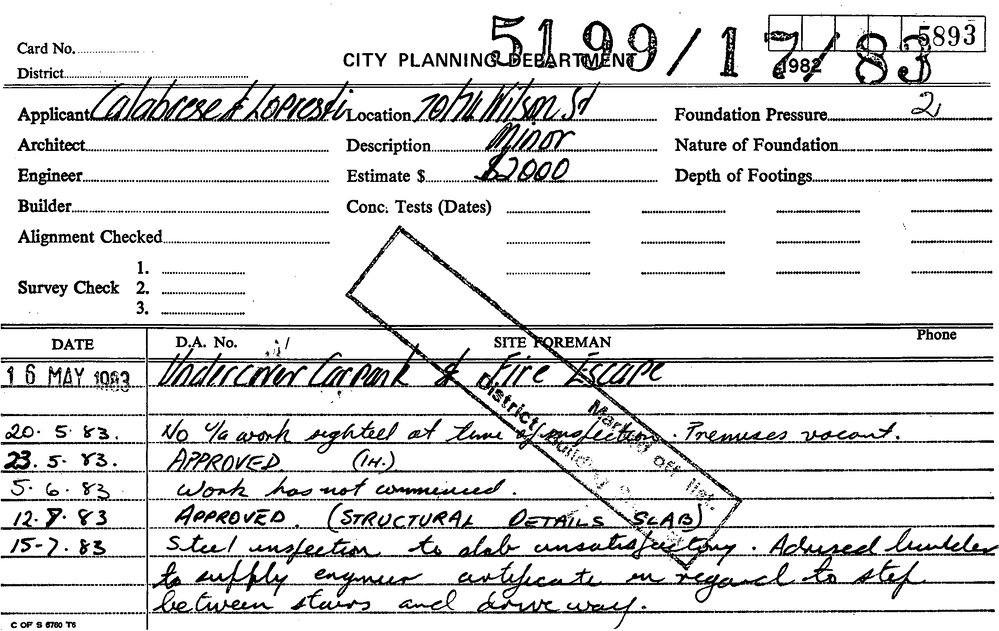 Card No.
5199/17/83
5893
1982
CITY PLANNING DEPARTMENT
District
Applicant Calabrese & Lopresti Location 70/74 Wilson St Foundation Pressure 2
Architect Description Minor Nature of Foundation
Engineer Estimate $ $2000 Depth of Footings
Builder Conc. Tests (Dates)
Alignment Checked
1.
Survey Check 2.
3.
DATE D.A. No. SITE FOREMAN Phone
16 MAY 1983 Undercover Carpark & Fire Escape
Marked off list.
District Building
20.5.83. No u/a work sighted at time of inspection. Premises vacant.
23.5.83. APPROVED (IH.)
5.6.83 Work has not commenced.
12.7.83 APPROVED. (STRUCTURAL DETAILS SLAB)
15-7.83 Steel inspection to slab unsatisfactory. Advised builder
to supply engineer certificate in regard to step
between stairs and driveway.
C OF S 6760 T6